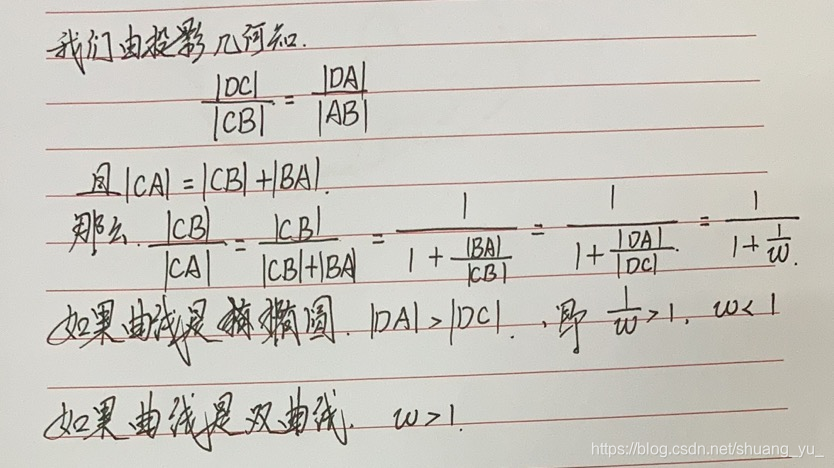 我们由投影几何知.
|DC|/|CB| = |DA|/|AB|
且|CA|=|CB|+|BA|.
那么. |CB|/|CA| = |CB|/(|CB|+|BA|) = 1/(1+|BA|/|CB|) = 1/(1+|DA|/|DC|) = 1/(1+1/w).
如果曲线是椭圆. |DA|>|DC|. 即 1/w>1. w<1
如果曲线是双曲线. w>1.
https://blog.csdn.net/shuang_yu_